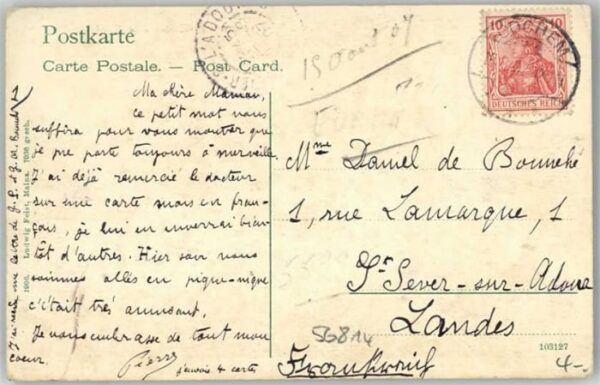 Postkarte
Carte Postale. — Post Card.
Ma chère Maman,
ce petit mot vous
suffira pour vous montrer que
je me porte toujours à merveille
J'ai déjà remercié le docteur
sur une carte mais en fran-
çais, je lui en enverrai bien-
tôt d'autres. Hier soir nous
sommes allés en pique-nique
c'était très amusant,
Je vous embrasse de tout mon
coeur.
Pierre
j'avais 4 cartes
J'ai
1906. Ludwig Feist, Mainz. 7036 gesch.
15 Août 07
10 10
DEUTSCHES REICH
COCHEM
L'ADOUR
Mme Daniel de Bonnehé
1, rue Lamarque, 1
St Sever-sur-Adour
Landes
Frankreich
56814
103127
4-